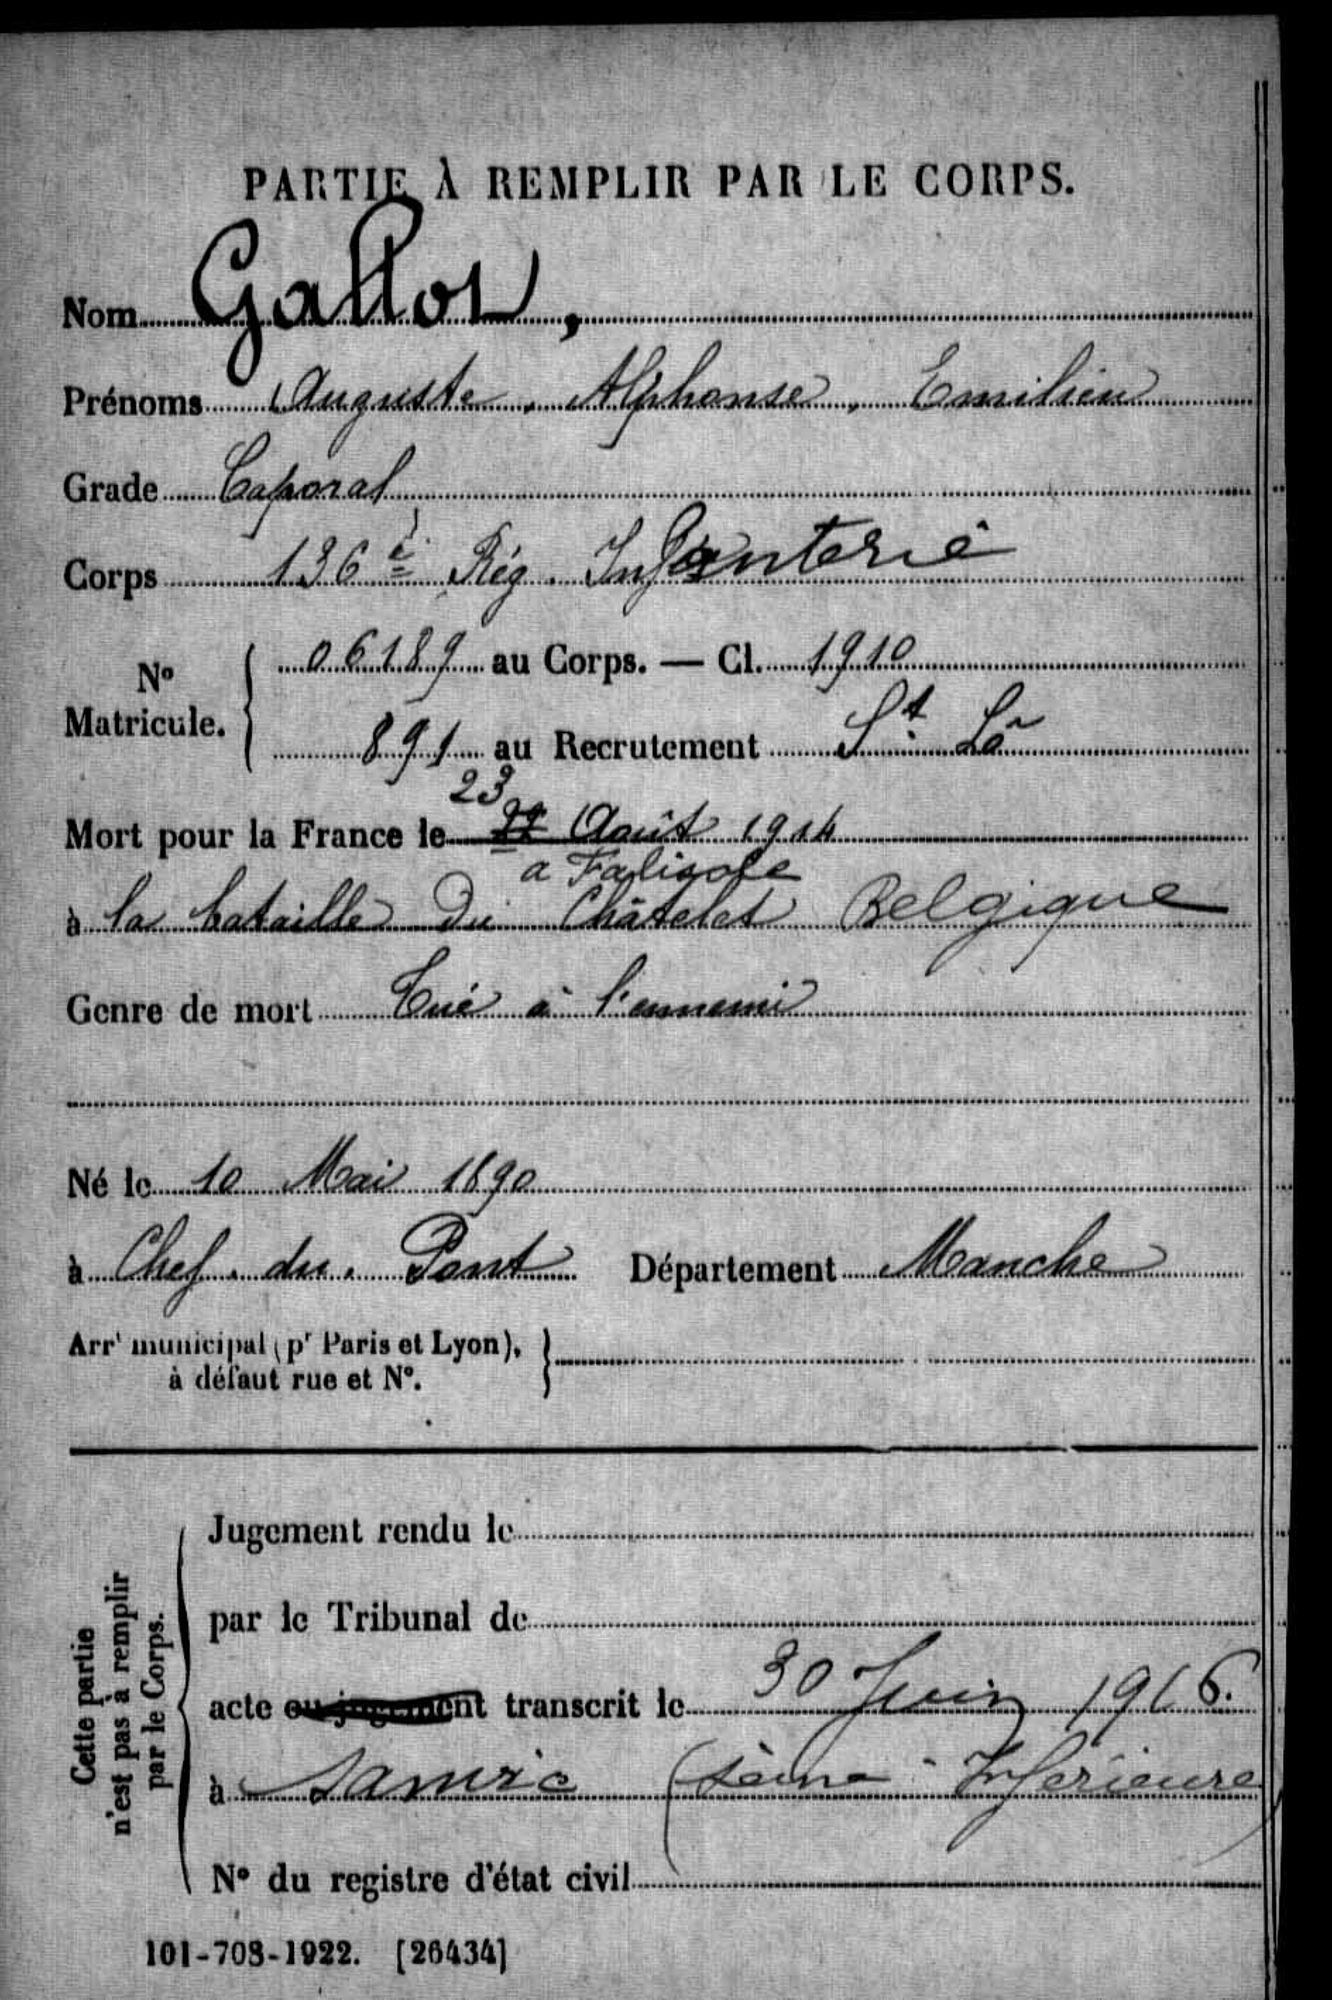 PARTIE À REMPLIR PAR LE CORPS.
Nom Gallot,
Prénoms Auguste, Alphonse, Emilien
Grade Caporal
Corps 136è Rég. Infanterie
No Matricule. { 06189 au Corps. — Cl. 1910
891 au Recrutement St Lô
23
Mort pour la France le 22 Août 1914
a Falisole
à la bataille du Châtelet Belgique
Genre de mort Tué à l'ennemi
Né le 10 Mai 1890
à Chef. du. Pont Département Manche
Arrt municipal (pr Paris et Lyon),
à défaut rue et No. }
Cette partie
n'est pas à remplir
par le Corps.
Jugement rendu le
par le Tribunal de
acte ou jugement transcrit le 30 Juin 1916.
à Sanvic (Seine-Inférieure
No du registre d'état civil
101-708-1922. [26434]